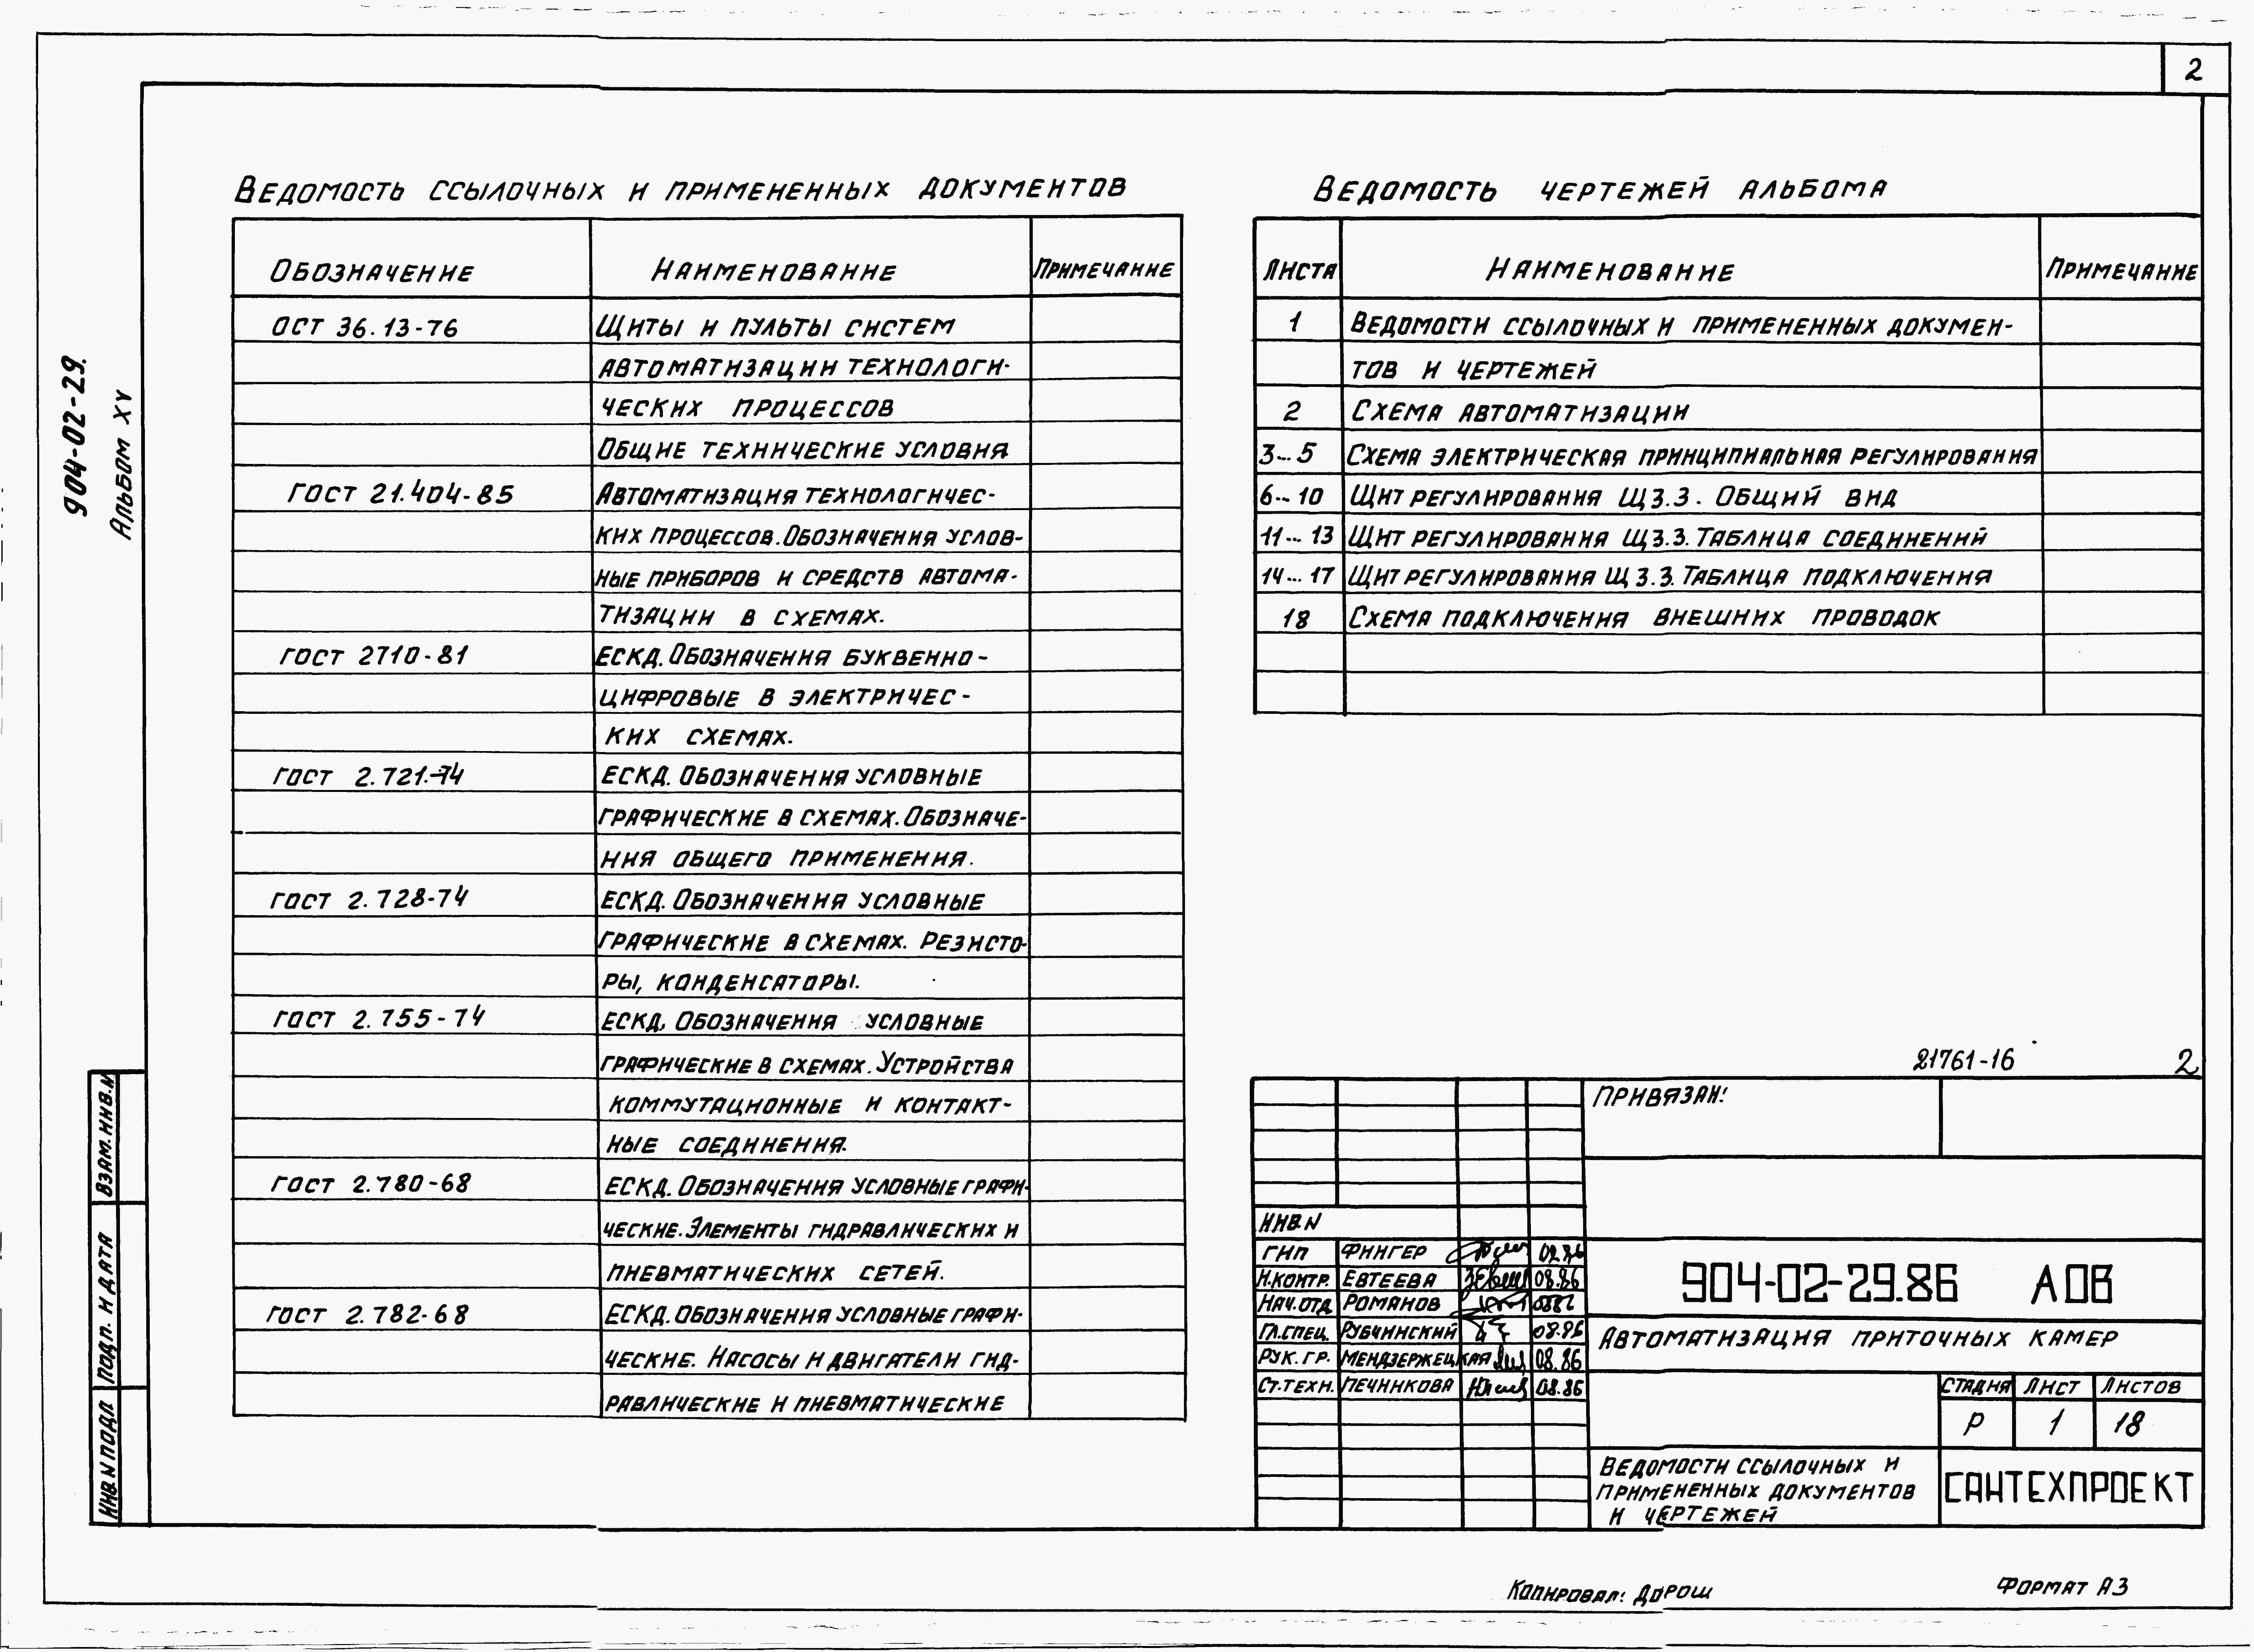 2
904-02-29.
Альбом XV
Ведомость ссылочных и примененных документов
Обозначение Наименование Примечание
ОСТ 36.13-76 Щиты и пульты систем
автоматизации технологи-
ческих процессов
Общие технические условия
ГОСТ 21.404-85 Автоматизация технологичес-
ких процессов. Обозначения услов-
ные приборов и средств автома-
тизации в схемах.
ГОСТ 2710-81 ЕСКД. Обозначения буквенно-
цифровые в электричес-
ких схемах.
ГОСТ 2.721-74 ЕСКД. Обозначения условные
графические в схемах. Обозначе-
ния общего применения.
ГОСТ 2.728-74 ЕСКД. Обозначения условные
графические в схемах. Резисто-
ры, конденсаторы.
ГОСТ 2.755-74 ЕСКД. Обозначения условные
графические в схемах. Устройства
коммутационные и контакт-
ные соединения.
ГОСТ 2.780-68 ЕСКД. Обозначения условные графи-
ческие. Элементы гидравлических и
пневматических сетей.
ГОСТ 2.782-68 ЕСКД. Обозначения условные графи-
ческие. Насосы и двигатели гид-
равлические и пневматические
Ведомость чертежей альбома
Листа Наименование Примечание
1 Ведомости ссылочных и примененных докумен-
тов и чертежей
2 Схема автоматизации
3...5 Схема электрическая принципиальная регулирования
6...10 Щит регулирования Щ3.3. Общий вид
11...13 Щит регулирования Щ3.3. Таблица соединений
14...17 Щит регулирования Щ3.3. Таблица подключения
18 Схема подключения внешних проводок
21761-16 2
Привязан:
Инв. N
ГИП Фингер
Н.контр. Евтеева 08.86
Нач.отд Романов
Гл.спец. Рубчинский 08.86
Рук. гр. Мендзержецкая 08.86
Ст.техн. Печникова 08.86
904-02-29.86 АОВ
Автоматизация приточных камер
Стадия Лист Листов
Р 1 18
Ведомости ссылочных и
примененных документов
и чертежей
САНТЕХПРОЕКТ
Взам. инв. N
Подп. и дата
Инв. N подл
Копировал: Дорош
Формат А3